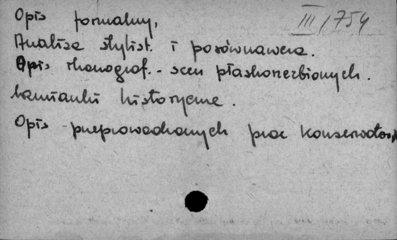 Opis formalny,
III/754
Analiza stylist. i porównawcza.
Opis ikonograf. - scen płaskorzeźbionych.
historyczne.
Opis przeprowadzonych prac konserwator